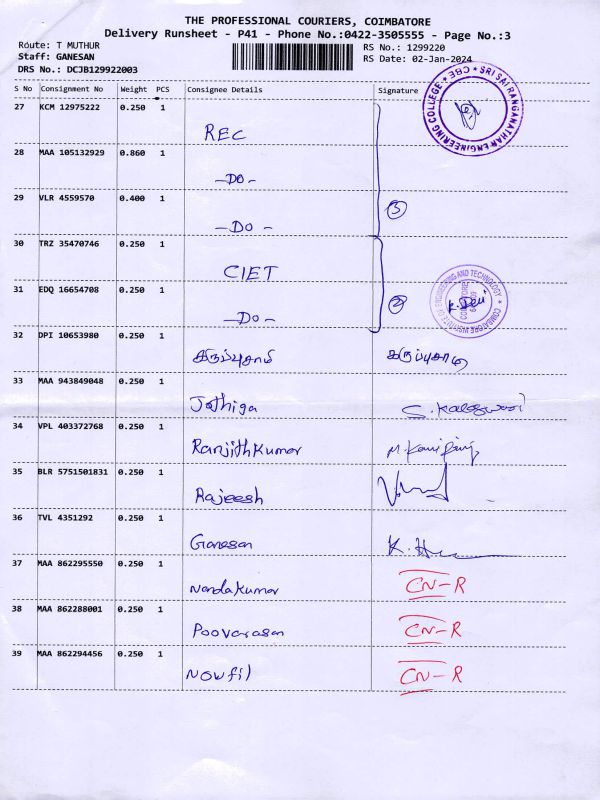 THE PROFESSIONAL COURIERS, COIMBATORE
Delivery Runsheet - P41 - Phone No.:0422-3505555 - Page No.:3
Route: T MUTHUR
RS No.: 1299220
Staff: GANESAN
RS Date: 02-Jan-2024
DRS No.: DCJB129922003
S No Consignment No Weight PCS Consignee Details Signature
SRI SAI RANGANATHAN ENGINEERING COLLEGE * CBE *
27 KCM 12975222 0.250 1
REC
28 MAA 105132929 0.860 1
-DO-
29 VLR 4559570 0.400 1
-DO-
③
30 TRZ 35470746 0.250 1
CIET
31 EDQ 16654708 0.250 1
-DO-
②
COIMBATORE INSTITUTE OF ENGINEERING AND TECHNOLOGY
K. Devi
32 DPI 10653980 0.250 1
கருப்புசாமி கருப்புசாமி
33 MAA 943849048 0.250 1
Jothiga
34 VPL 403372768 0.250 1
Ranjithkumar
35 BLR 5751501831 0.250 1
Rajeesh
36 TVL 4351292 0.250 1
Ganesan
37 MAA 862295550 0.250 1
Nandakumar CN-R
38 MAA 862288001 0.250 1
Poovarasan CN-R
39 MAA 862294456 0.250 1
Nowfil CN-R